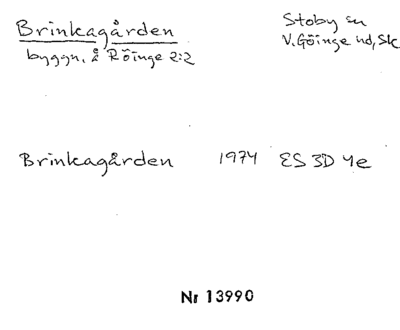 Brinkagården
byggn. å Röinge 2:2
Stoby sn
V. Göinge hd, Sk
Brinkagården 1974 ES 3D 4e
Nr 13990